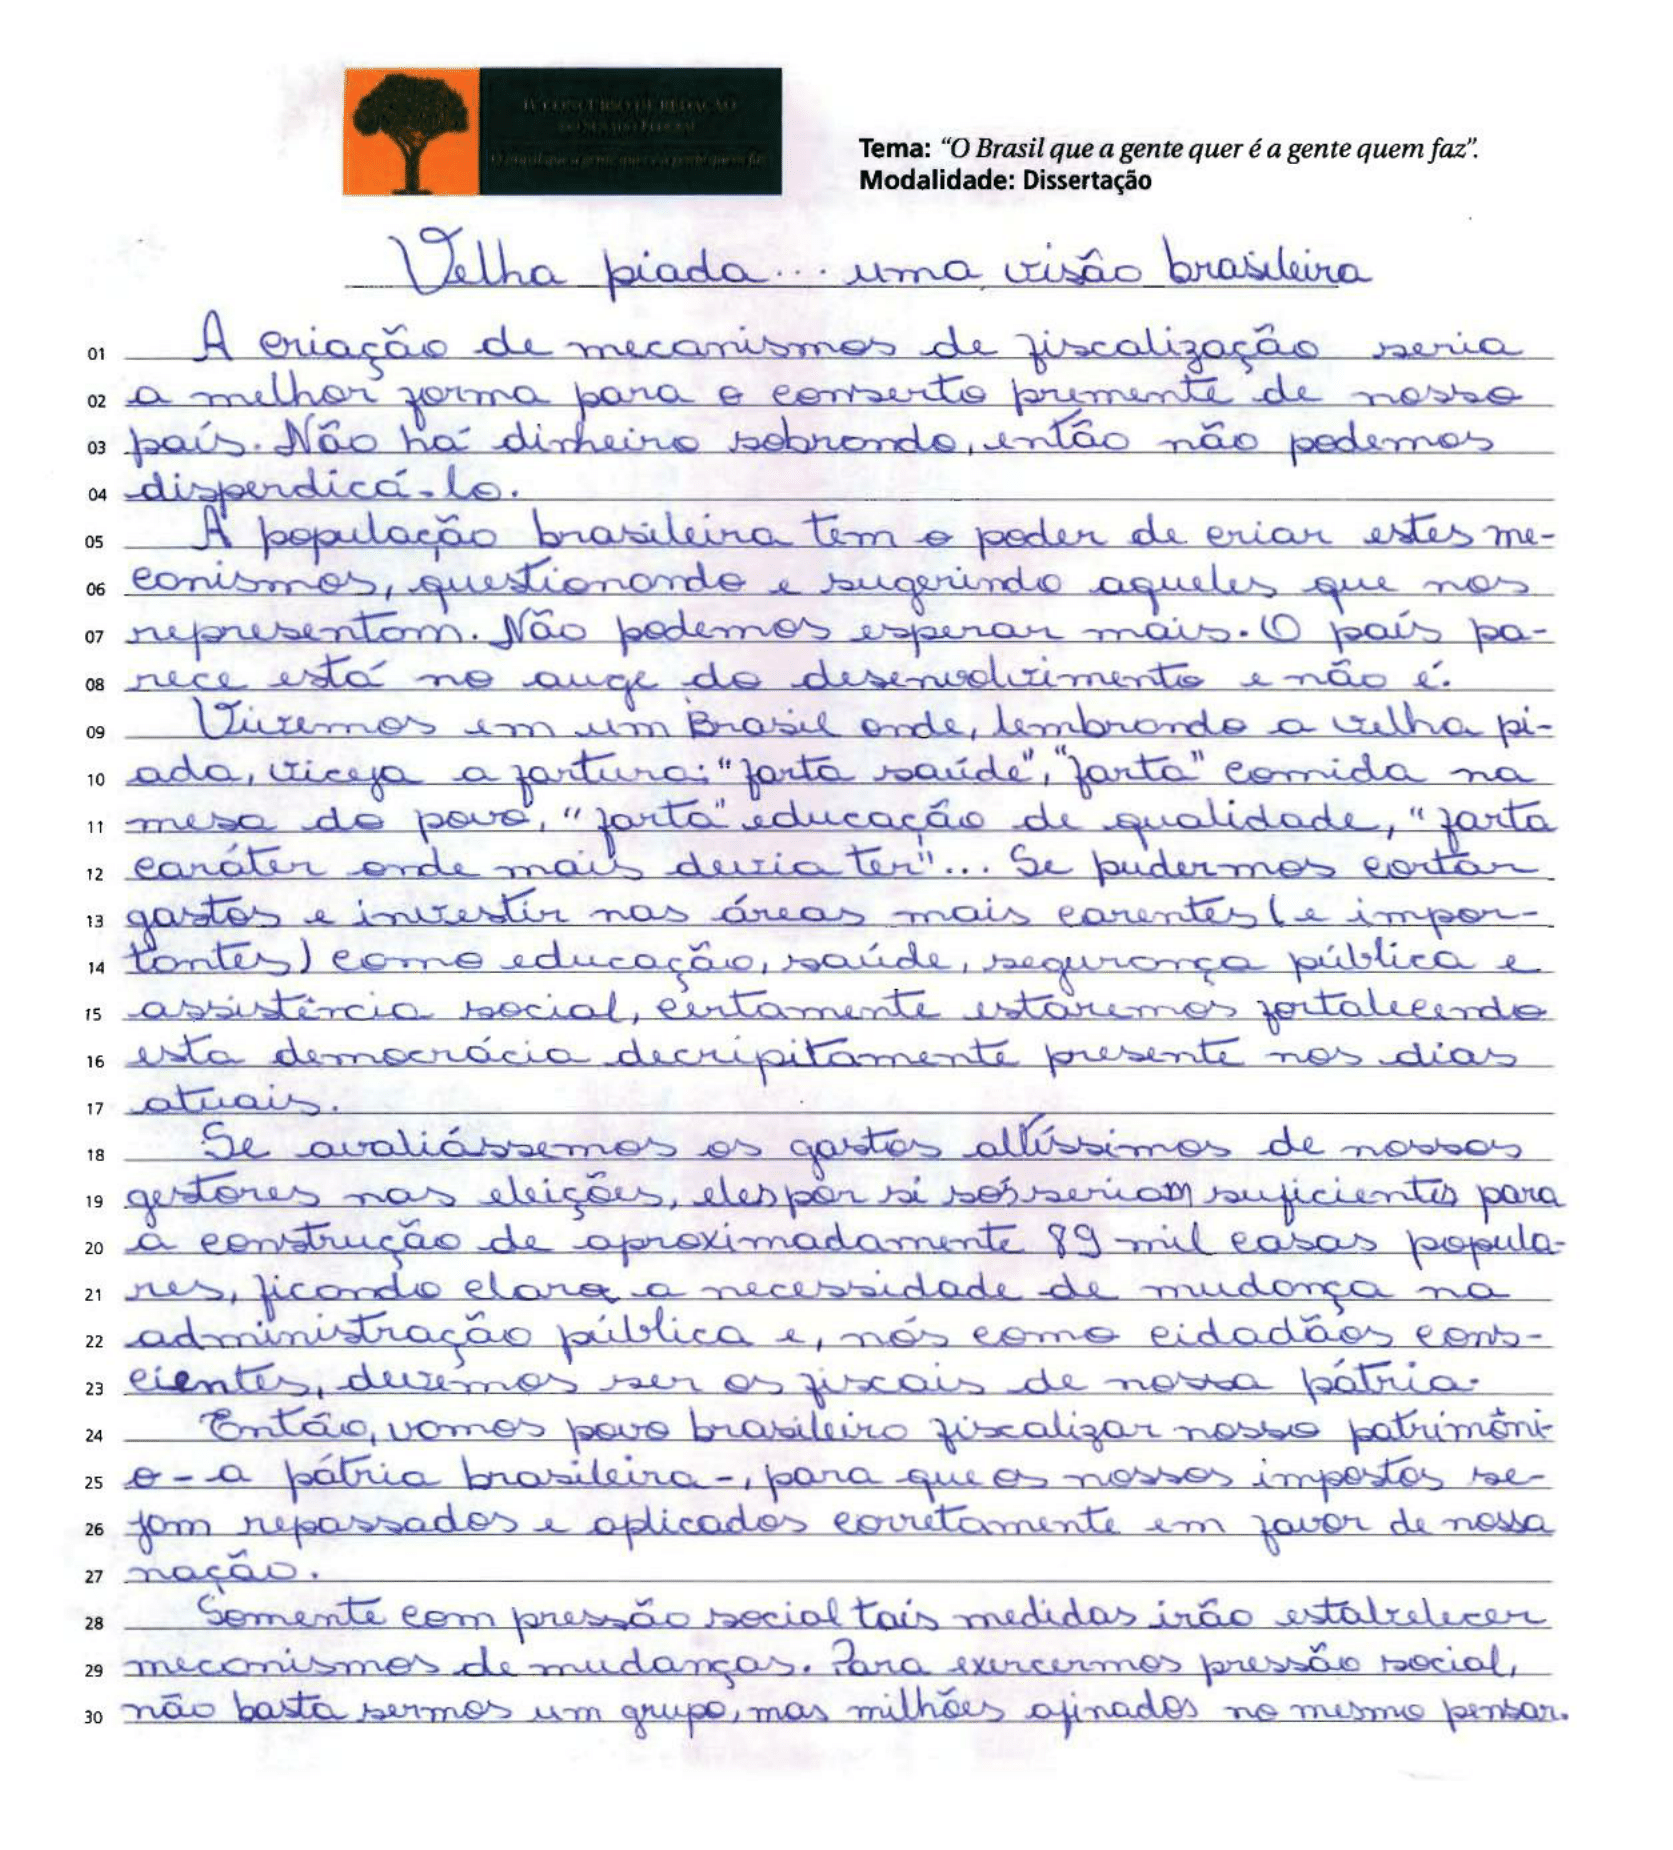 IV CONCURSO DE REDAÇÃO
DO SENADO FEDERAL
O Brasil que a gente quer é a gente quem faz
Tema: “O Brasil que a gente quer é a gente quem faz”.
Modalidade: Dissertação
Velha piada... uma visão brasileira
01 A criação de mecanismos de fiscalização seria
02 a melhor forma para o conserto premente de nosso
03 país. Não há dinheiro sobrando, então não podemos
04 disperdicá-lo.
05 A população brasileira tem o poder de criar estes me-
06 canismos, questionando e sugerindo aqueles que nos
07 representam. Não podemos esperar mais. O país pa-
08 rece está no auge do desenvolvimento e não é.
09 Vivemos em um Brasil onde, lembrando a velha pi-
10 ada, viceja a fartura: "farta saúde", "farta" comida na
11 mesa do povo, "farta" educação de qualidade, "farta
12 caráter onde mais devia ter"... Se pudermos cortar
13 gastos e investir nas áreas mais carentes (e impor-
14 tantes) como educação, saúde, segurança pública e
15 assistência social, certamente estaremos fortalecendo
16 esta democrácia decripitamente presente nos dias
17 atuais.
18 Se avaliássemos os gastos altíssimos de nossos
19 gestores nas eleições, eles por si sós seriam suficientes para
20 a construção de aproximadamente 89 mil casas popula-
21 res, ficando clara a necessidade de mudança na
22 administração pública e, nós como cidadãos cons-
23 cientes, devemos ser os fiscais de nossa pátria.
24 Então, vamos povo brasileiro fiscalizar nosso patrimôni-
25 o - a pátria brasileira -, para que os nossos impostos se-
26 jam repassados e aplicados corretamente em favor de nossa
27 nação.
28 Somente com pressão social tais medidas irão estabelecer
29 mecanismos de mudanças. Para exercermos pressão social,
30 não basta sermos um grupo, mas milhões afinados no mesmo pensar.